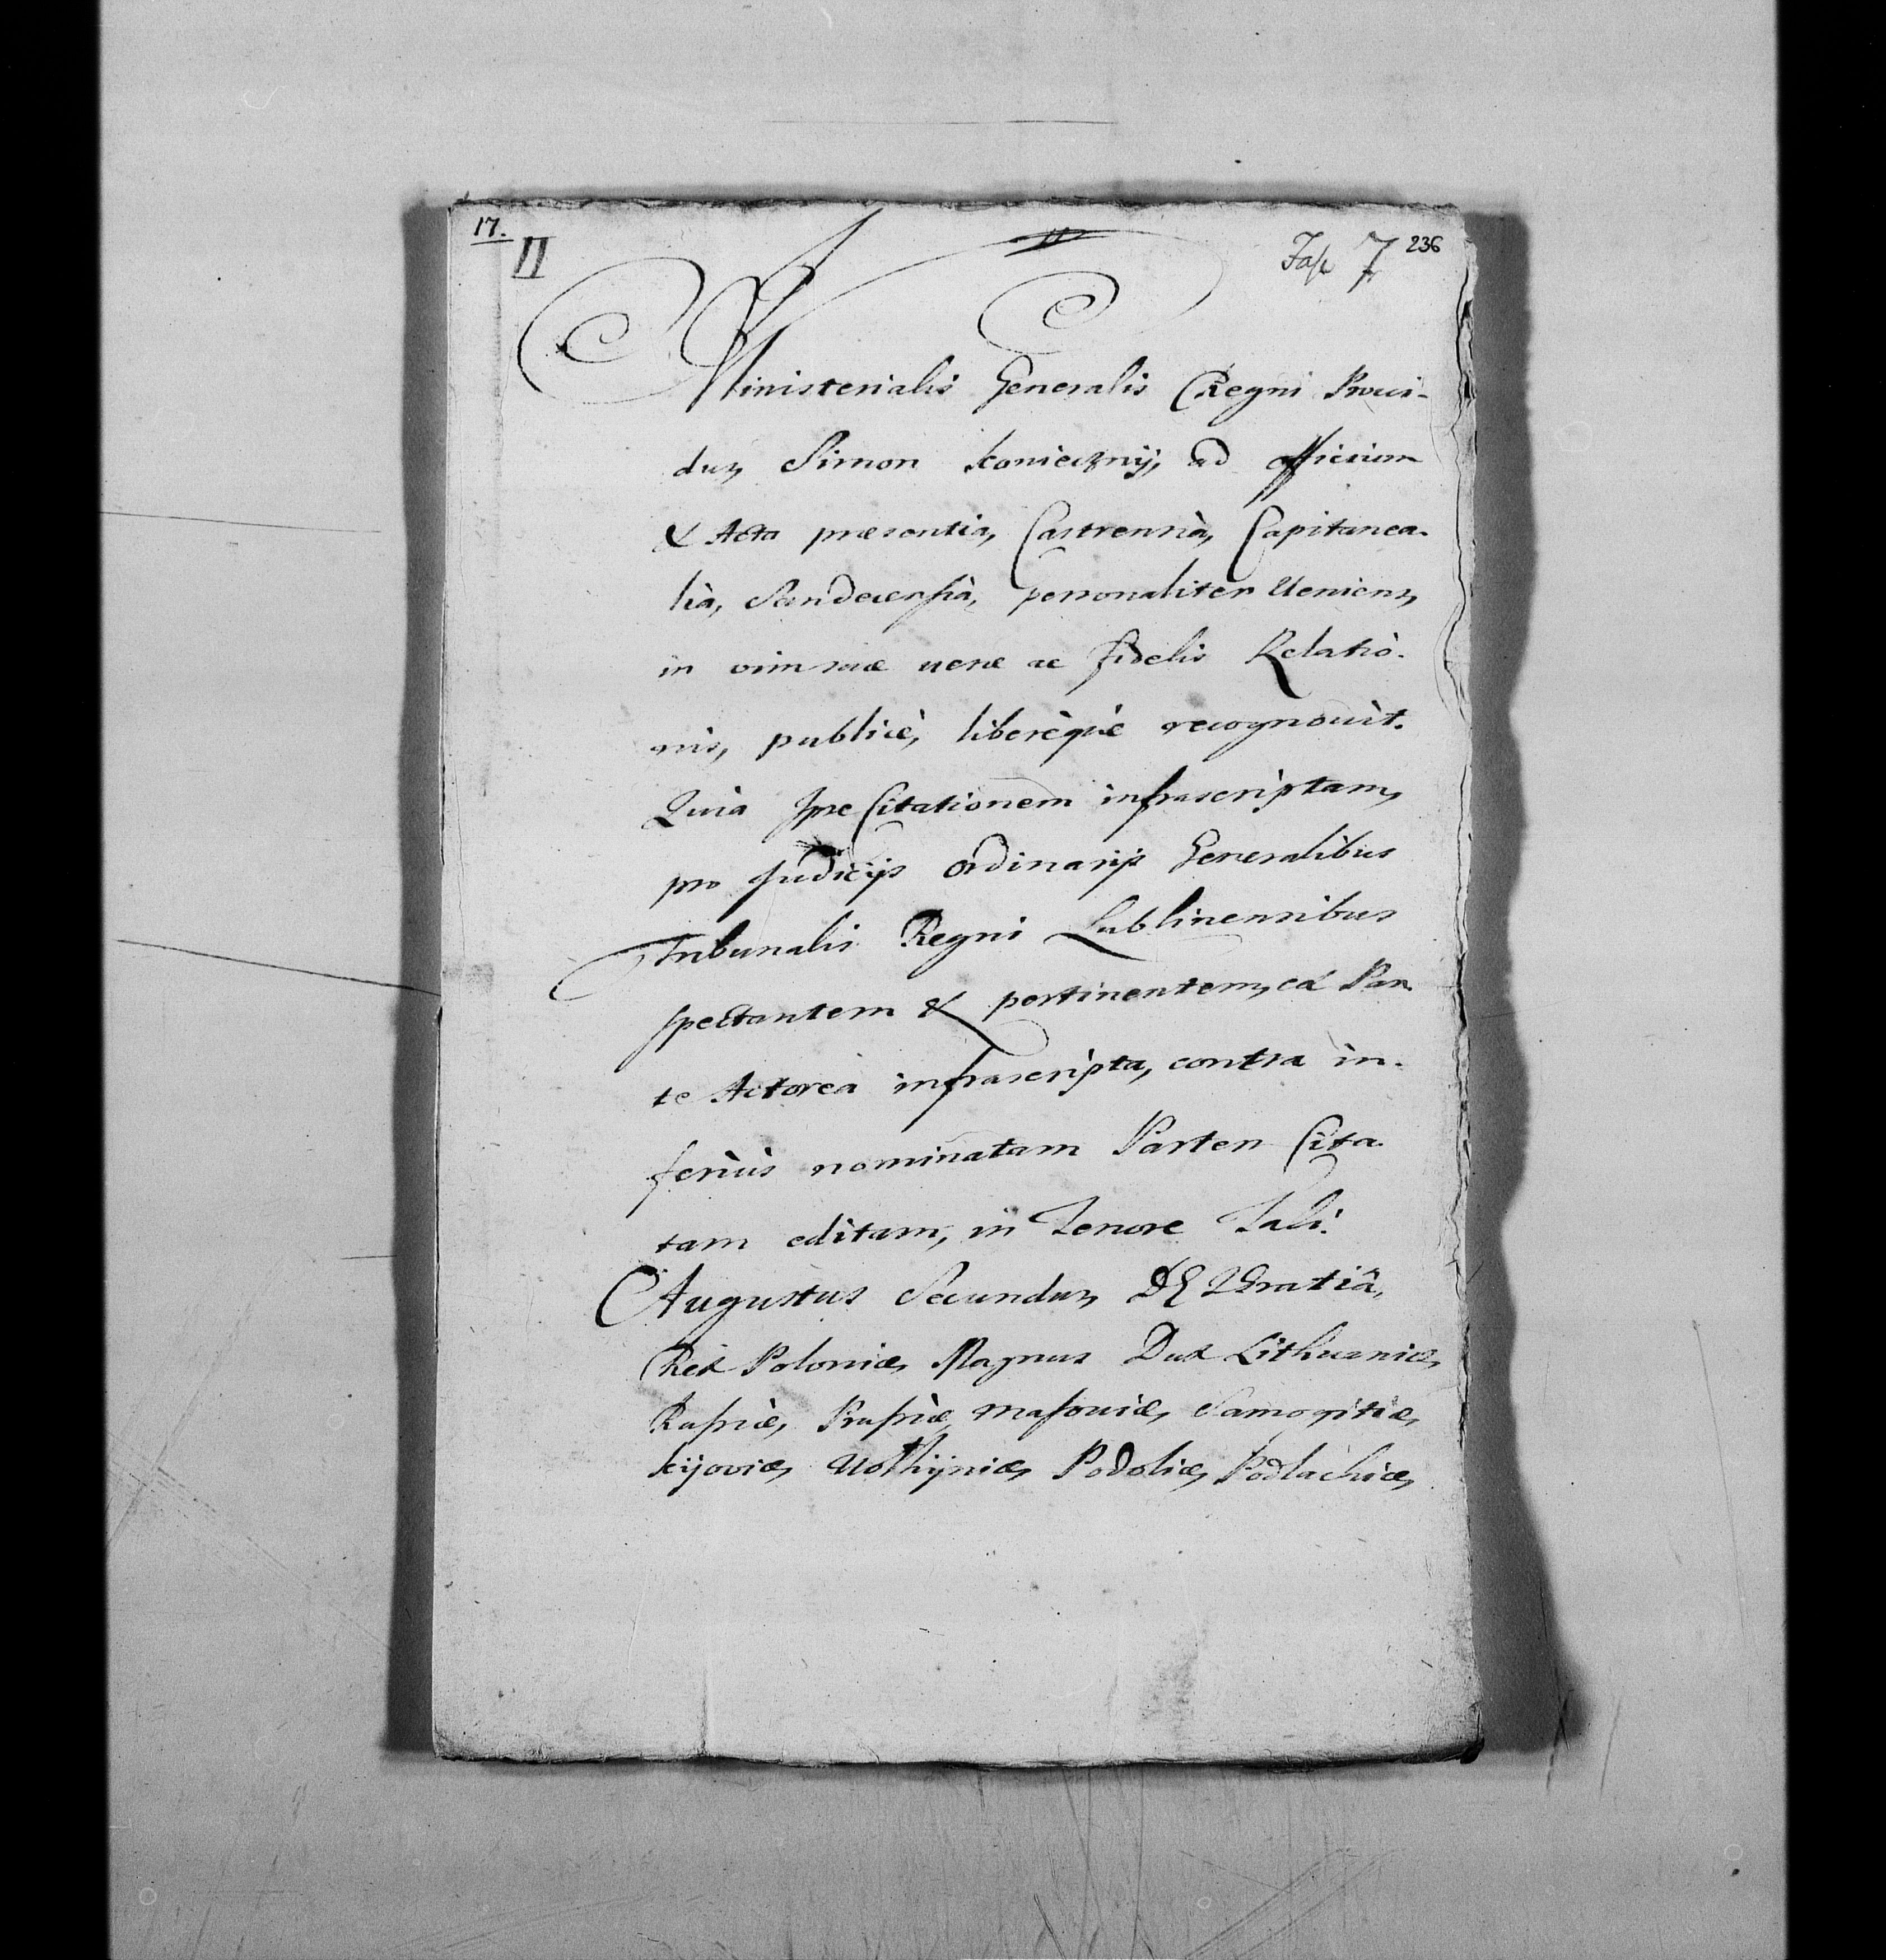 17.
II
Fasc 7 236
Ministerialis Generalis Regni Provi-
dus, Simon Koniecznÿ, ad officium
& Acta præsentia, Castrensià, Capitanea-
lià, Sandecensià, personaliter Ueniens,
in vim suæ ueræ ac fidelis Relatiò-
nis, publicè, liberèquè recognouit.
Quia Ipse Citationem infrascriptam,
pro Judicijs ordinarijs Generalibus
Tribunalis Regni Lublinensibus
spectantem & pertinentem, ex Par
te Actoreà infrascripta, contra in-
feriùs nominatam Partem Cita
tam editam, in Tenore Tali:
Augustus Secundus, DEI Gratiâ,
Rex Poloniæ, Magnus Dux Lithuaniæ,
Russiæ, Prussiæ, Masouiæ, Samogitiæ,
Kijoviæ, Uolhijniæ, Podoliæ, Podlachiæ,